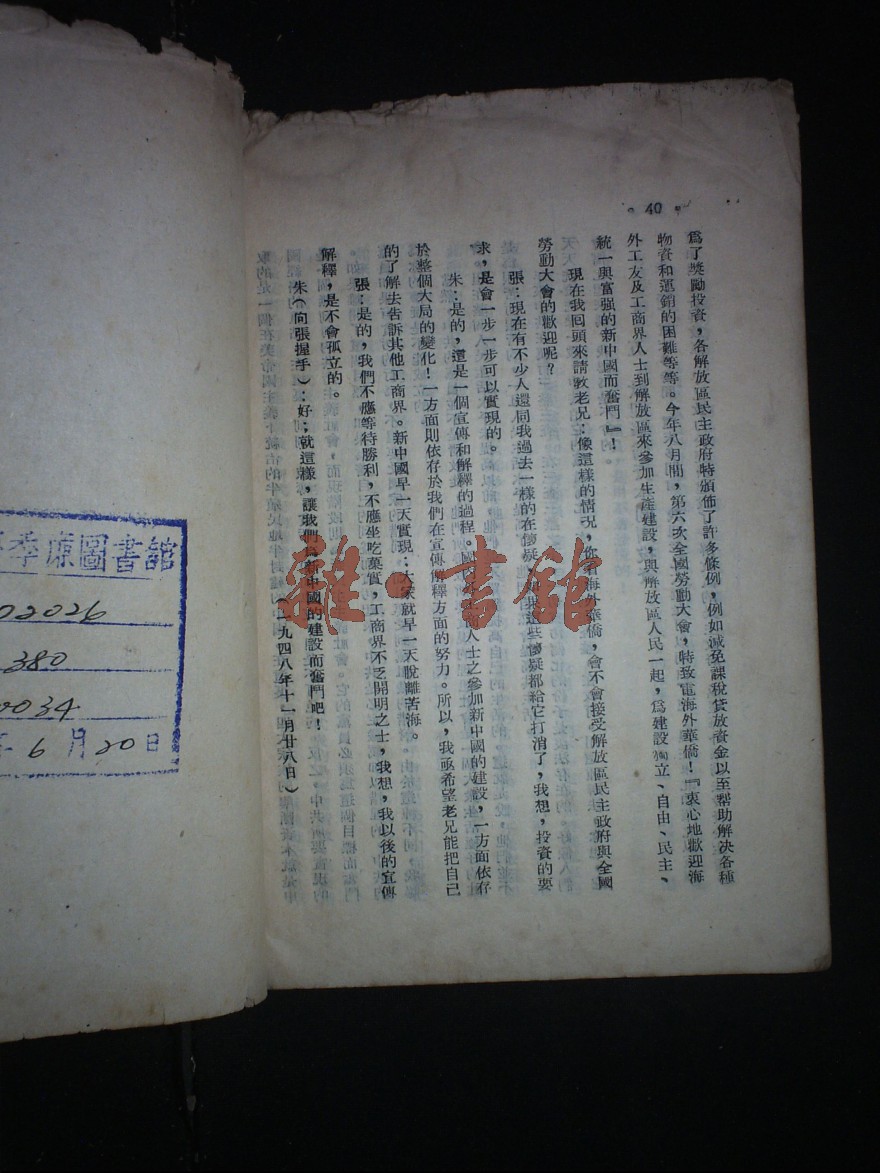 。40。
為了獎勵投資，各解放區民主政府特頒佈了許多條例，例如減免課稅貸放資金以至幫助解決各種
物資和運銷的困難等等。今年八月間，第六次全國勞動大會，特致電海外華僑！『衷心地歡迎海
外工友及工商界人士到解放區來參加生產建設，與解放區人民一起，為建設獨立、自由、民主、
統一與富强的新中國而奮鬥』！
現在我回頭來請敎老兄：像這樣的情況，你看海外華僑，會不會接受解放區民主政府與全國
勞動大會的歡迎呢？
張：現在有不少人還同我過去一樣的在懷疑 這些懷疑都給它打消了，我想，投資的要
求，是會一步一步可以實現的。
朱：是的，還是一個宣傳和解釋的過程。國內 人士之參加新中國的建設，一方面依存
於整個大局的變化！一方面則依存於我們在宣傳解釋方面的努力。所以，我亟希望老兄能把自己
的了解去告訴其他工商界。新中國早一天實現：大家就早一天脫離苦海。
張：是的，我們不應等待勝利，不應坐吃菓實，工商界不乏開明之士，我想，我以後的宣傳
解釋，是不會孤立的。
朱（向張握手）：好；就這樣，讓我們為新中國的建設而奮鬥吧！
（一九四八年十一月廿八日）
季康圖書館
02026
380
0034
6月20日
雜·書館